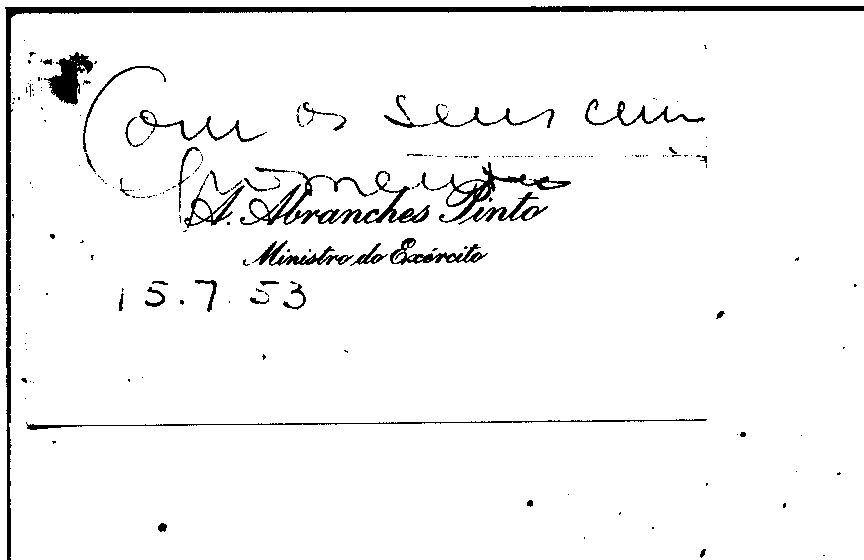 Com os seus cum
primentos
A. Abranches Pinto
Ministro do Exército
15.7.53